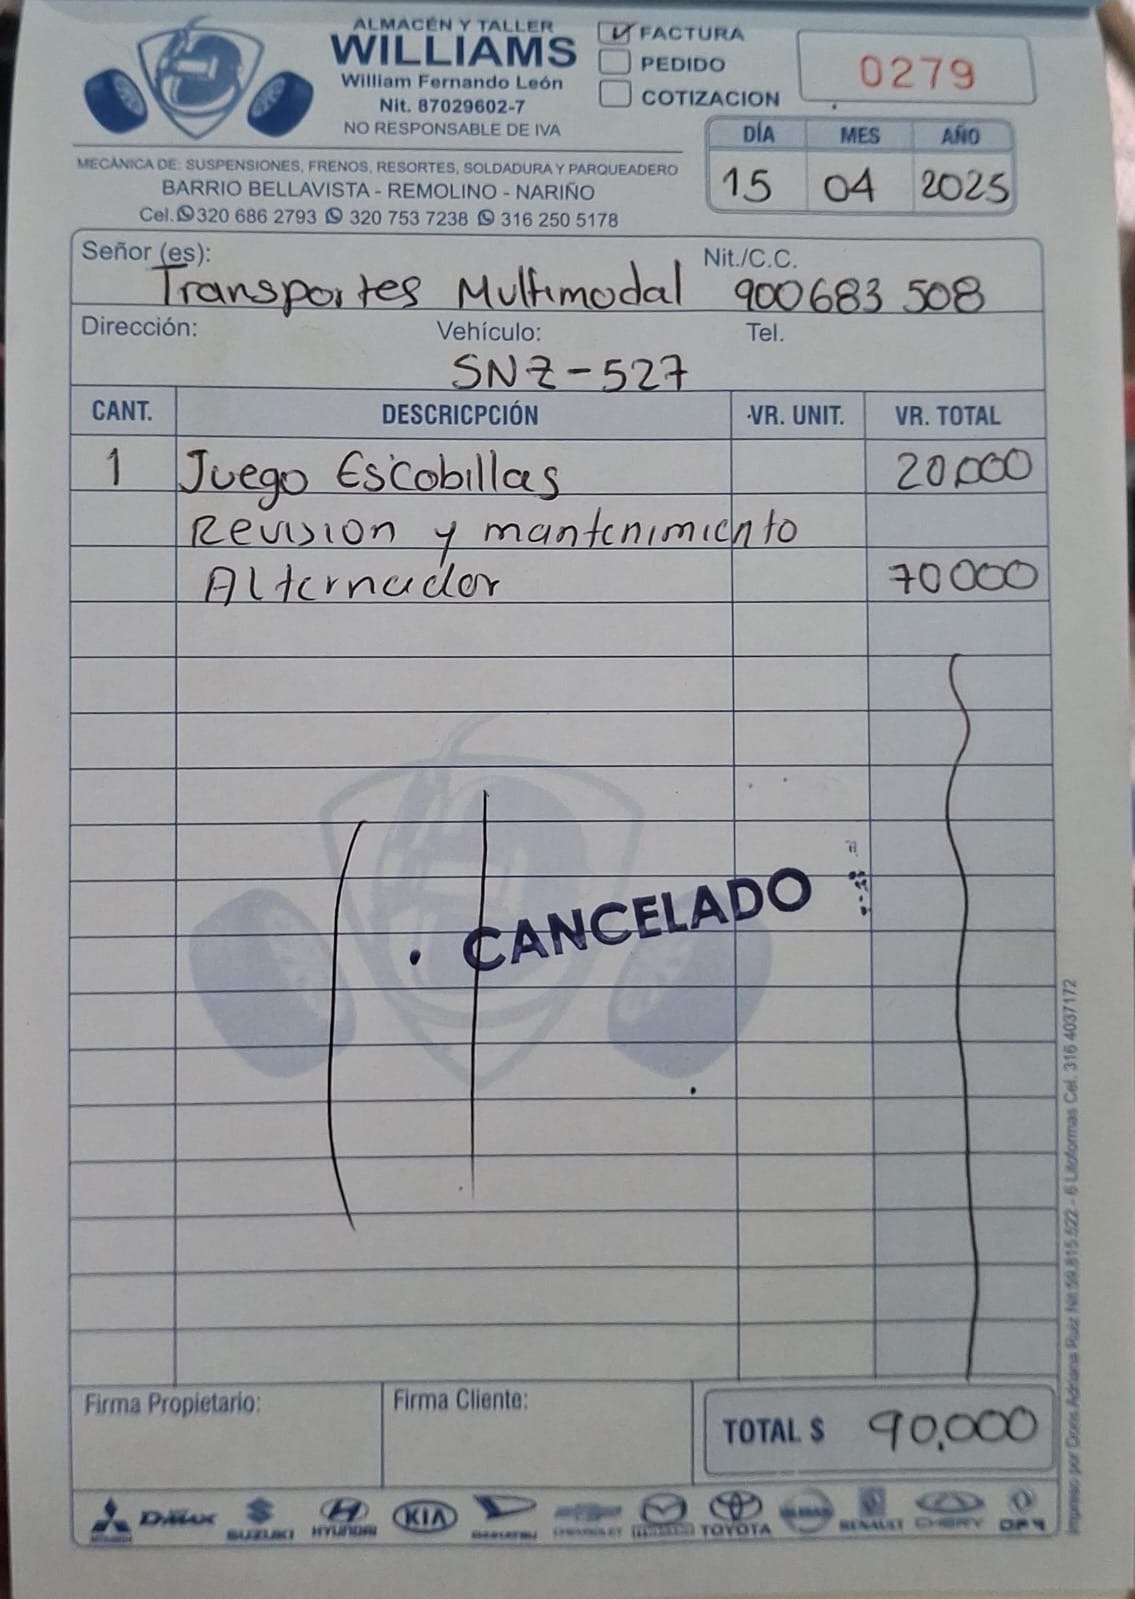 ALMACÉN Y TALLER
WILLIAMS
William Fernando León
Nit. 87029602-7
NO RESPONSABLE DE IVA
FACTURA
PEDIDO
COTIZACION
0279
DÍA MES AÑO
15 04 2025
MECÁNICA DE: SUSPENSIONES, FRENOS, RESORTES, SOLDADURA Y PARQUEADERO
BARRIO BELLAVISTA - REMOLINO - NARIÑO
Cel. 320 686 2793 320 753 7238 316 250 5178
Señor (es): Nit./C.C.
Transportes Multimodal 900683 508
Dirección: Vehículo: Tel.
SNZ-527
CANT. DESCRICPCIÓN VR. UNIT. VR. TOTAL
1 Juego Escobillas 20.000
Revision y mantenimiento
Alternador 70000
CANCELADO
Firma Propietario: Firma Cliente: TOTAL $ 90.000
D-MAX SUZUKI HYUNDAI KIA DAIHATSU CHEVROLET TOYOTA RENAULT CHERY
Impreso por Doris Adriana Ruiz Nit:59.815.522 - 6 Litoformas Cel. 316 4037172